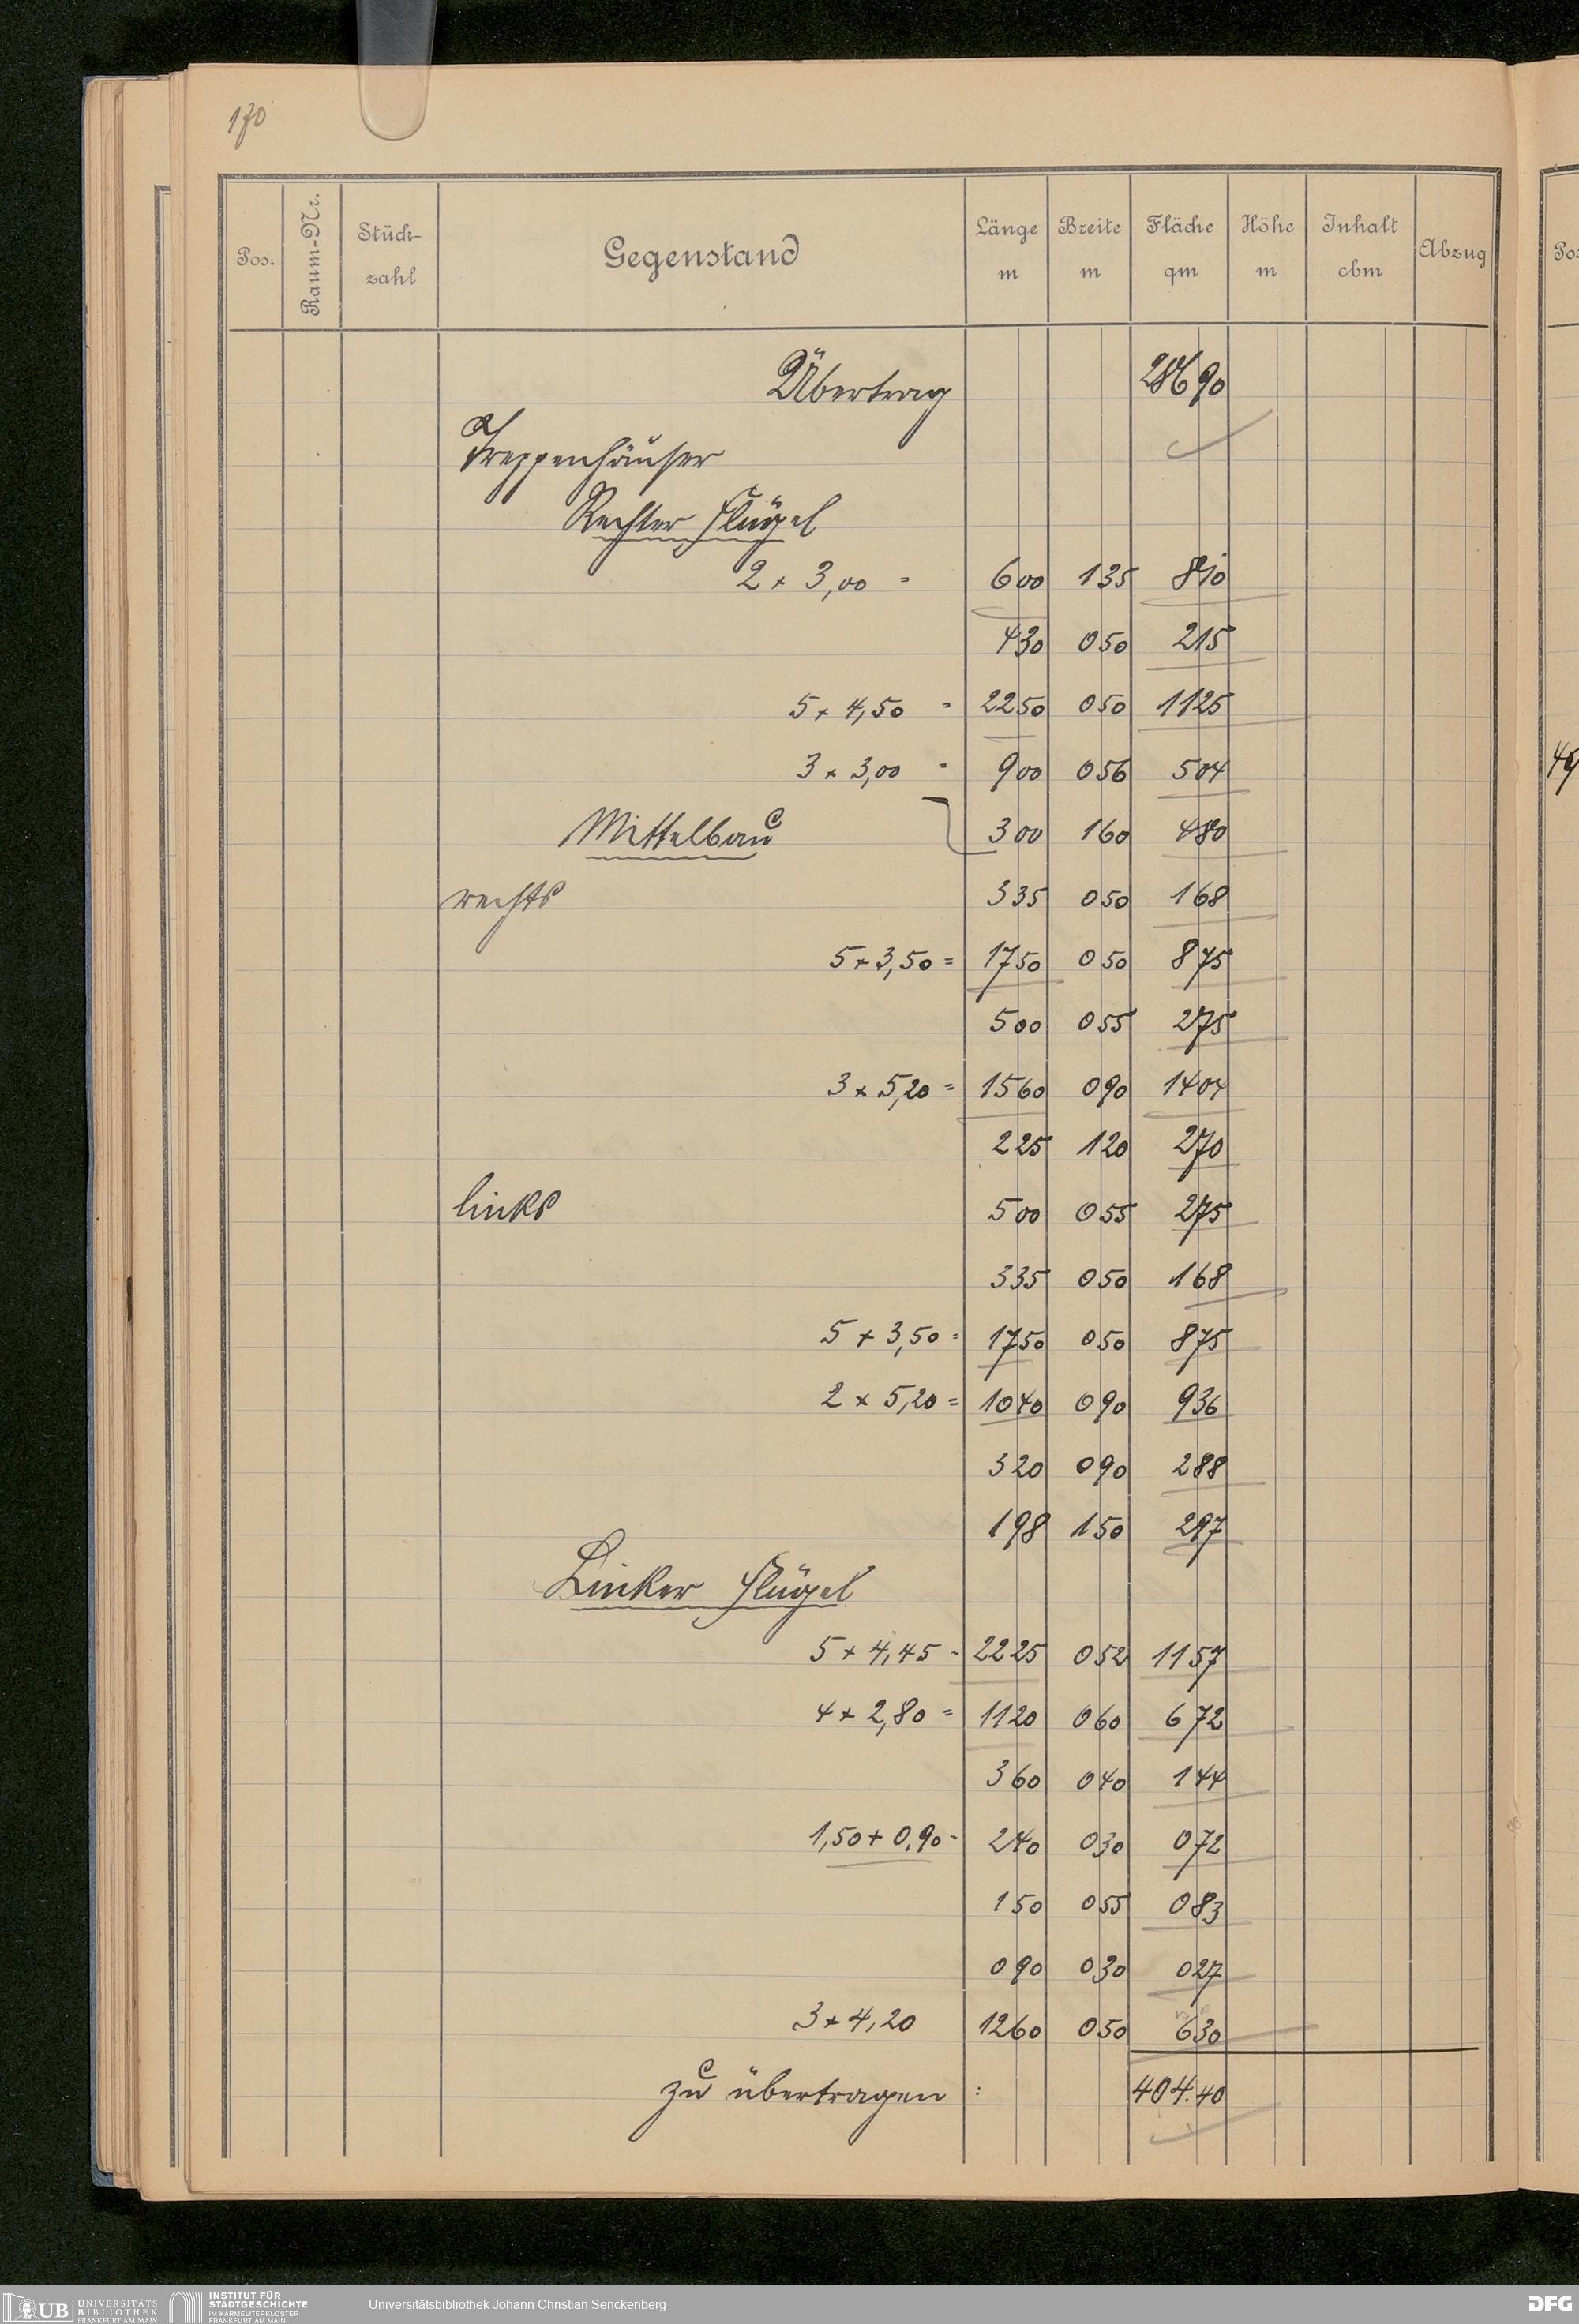 170
Pos. Raum-Nr. Stück-zahl Gegenstand Länge m Breite m Fläche qm Höhe m Inhalt cbm Abzug
Übertrag 286 90
Treppenhäuser
Rechter Flügel
2 × 3,00 = 6 00 1 35 8 10
4 30 0 50 2 15
5 × 4,50 = 22 50 0 50 11 25
3 × 3,00 = 9 00 0 56 5 04
Mittelbau 3 00 1 60 4 80
rechts 3 35 0 50 1 68
5 × 3,50 = 17 50 0 50 8 75
5 00 0 55 2 75
3 × 5,20 = 15 60 0 90 14 04
2 25 1 20 2 70
links 5 00 0 55 2 75
3 35 0 50 1 68
5 × 3,50 = 17 50 0 50 8 75
2 × 5,20 = 10 40 0 90 9 36
3 20 0 90 2 88
1 98 1 50 2 97
Linker Flügel
5 × 4,45 = 22 25 0 52 11 57
4 × 2,80 = 11 20 0 60 6 72
3 60 0 40 1 44
1,50 + 0,90 = 2 40 0 30 0 72
1 50 0 55 0 83
0 90 0 30 0 27
3 × 4,20 12 60 0 50 6 30
zu übertragen : 404.40
UB UNIVERSITÄTS
BIBLIOTHEK
FRANKFURT AM MAIN
INSTITUT FÜR
STADTGESCHICHTE
IM KARMELITERKLOSTER
FRANKFURT AM MAIN
Universitätsbibliothek Johann Christian Senckenberg
DFG